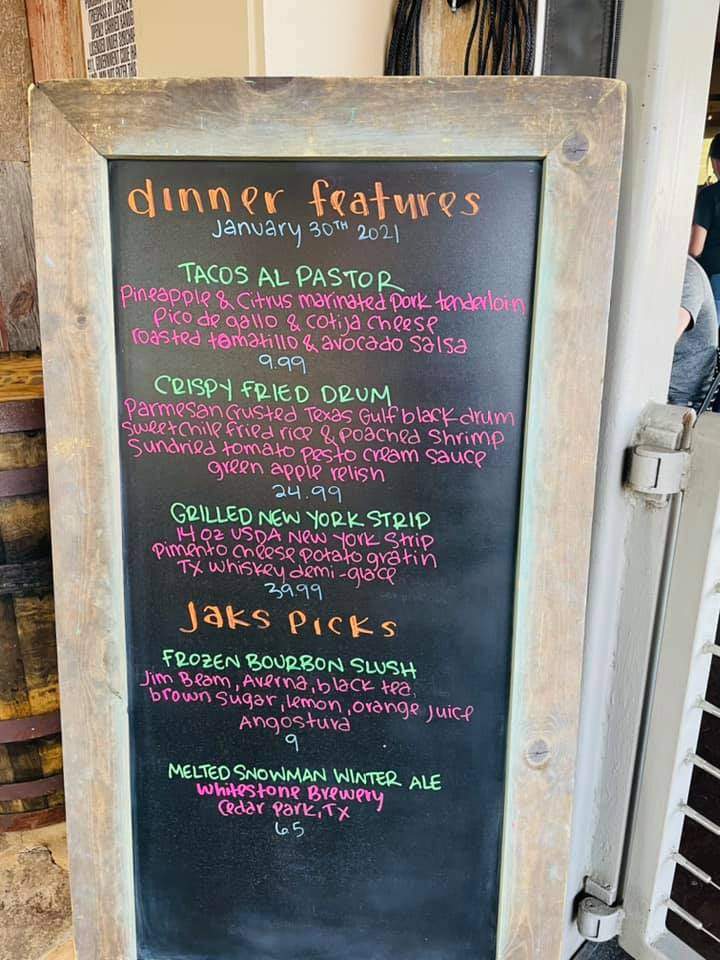 dinner features
January 30TH 2021
TACOS AL PASTOR
Pineapple & Citrus marinated Pork tenderloin
Pico de gallo & cotija cheese
roasted tomatillo & avocado salsa
9.99
CRISPY FRIED DRUM
Parmesan Crusted Texas Gulf black drum
Sweet Chile fried rice & Poached Shrimp
Sundried tomato Pesto Cream Sauce
green apple relish
24.99
GRILLED NEW YORK STRIP
14 oz USDA New York Strip
Pimento Cheese Potato gratin
TX whiskey demi-glace
39.99
Jaks Picks
FROZEN BOURBON SLUSH
Jim Beam, Averna, black tea,
brown Sugar, lemon, orange Juice
Angostura
9
MELTED SNOWMAN WINTER ALE
Whitestone Brewery
Cedar Park, TX
6.5